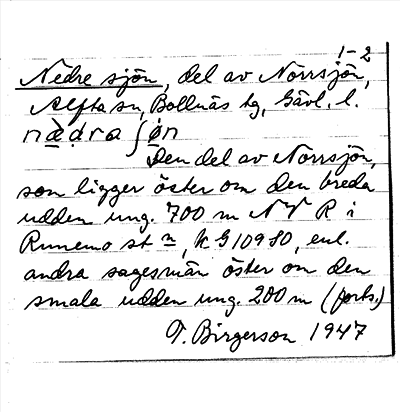 1-2
Nedre sjön, del av Norrsjön,
Alfta sn, Bollnäs tg, Gävl. l.
nǝ̀dra ʃön
Den del av Norrsjön,
som ligger öster om den breda
udden ung. 700 m NV R i
Runemo st n, k G 10980, enl.
andra sagesmän öster om den
smala udden ung. 200 m (forts.)
T. Birgerson 1947